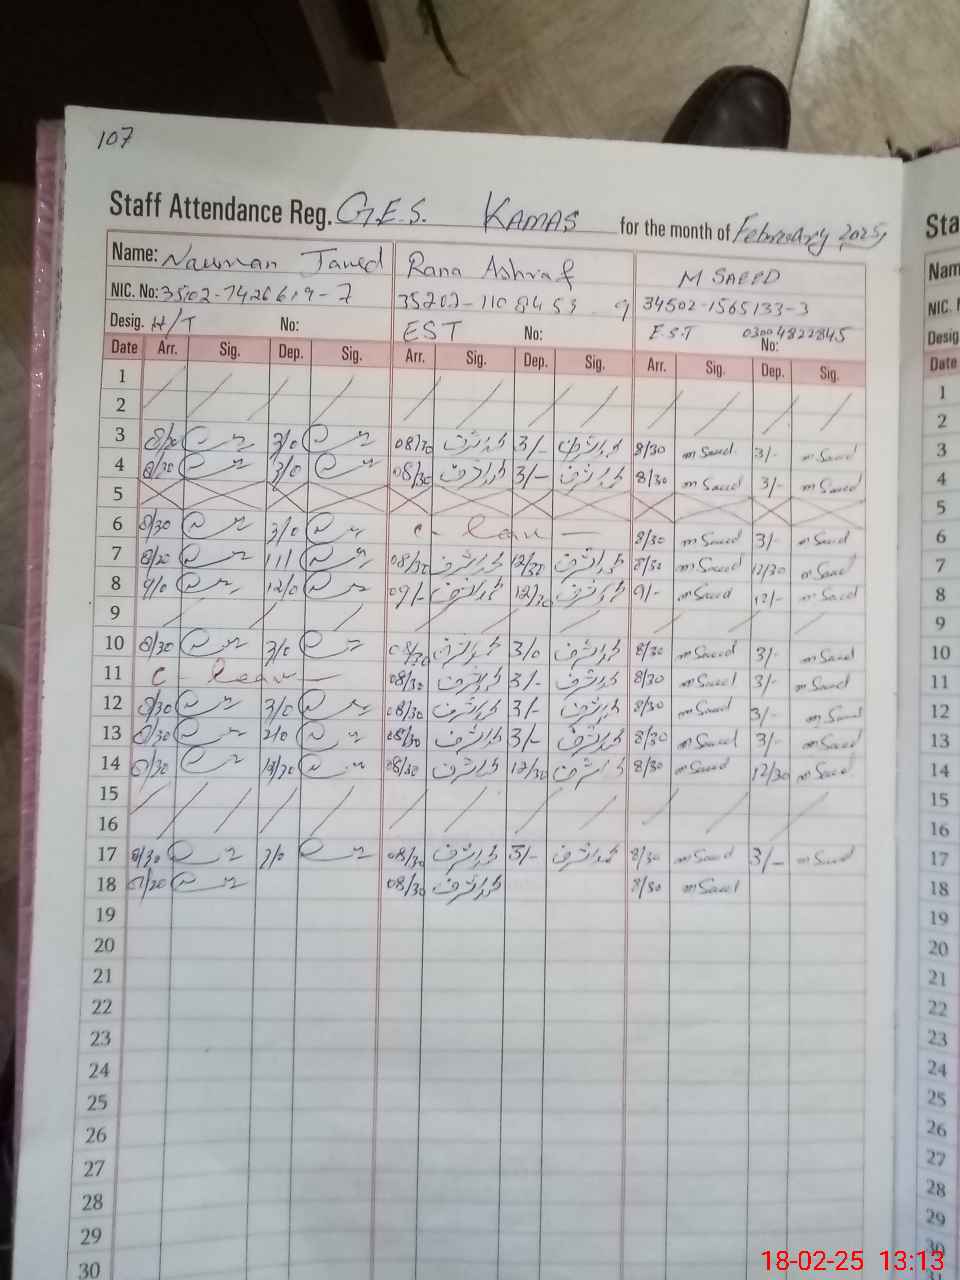 107
Staff Attendance Reg. G.E.S. KAMAS for the month of February 2025,
Name: Nauman Javed Rana Ashraf M SAEED
NIC. No: 35202-1108453 9 34502-1565133-3
Desig. H/T No: EST No: E.S.T 03004822845 No:
Date Arr. Sig. Dep. Sig. Arr. Sig. Dep. Sig. Arr. Sig. Dep. Sig.
1
2
3 8/30 3/0 08/30 محمد اشرف 3/- محمد اشرف 8/30 m Saeed 3/- m Saeed
4 8/30 3/0 08/30 محمد اشرف 3/- محمد اشرف 8/30 m Saeed 3/- m Saeed
5
6 8/30 3/0 c - leave - 8/30 m Saeed 3/- m Saeed
7 8/30 08/30 محمد اشرف 12/30 محمد اشرف 8/30 m Saeed 12/30 m Saeed
8 9/0 12/0 09/- محمد اشرف 12/30 محمد اشرف 9/- m Saeed 12/- m Saeed
9
10 8/30 3/0 08/30 محمد اشرف 3/0 محمد اشرف 8/30 m Saeed 3/- m Saeed
11 c - leave - 08/30 محمد اشرف 3/- محمد اشرف 8/30 m Saeed 3/- m Saeed
12 8/30 3/0 08/30 محمد اشرف 3/- محمد اشرف 8/30 m Saeed 3/- m Saeed
13 8/30 08/30 محمد اشرف 3/- محمد اشرف 8/30 m Saeed 3/- m Saeed
14 8/30 12/30 08/30 محمد اشرف 12/30 محمد اشرف 8/30 m Saeed 12/30 m Saeed
15
16
17 8/30 3/0 08/30 محمد اشرف 3/- محمد اشرف 8/30 m Saeed 3/- m Saeed
18 08/30 محمد اشرف 8/30 m Saeed
19
20
21
22
23
24
25
26
27
28
29
30
Sta
Nam
NIC.
Desig
Date
1
2
3
4
5
6
7
8
9
10
11
12
13
14
15
16
17
18
19
20
21
22
23
24
25
26
27
28
29
30
18-02-25 13:13